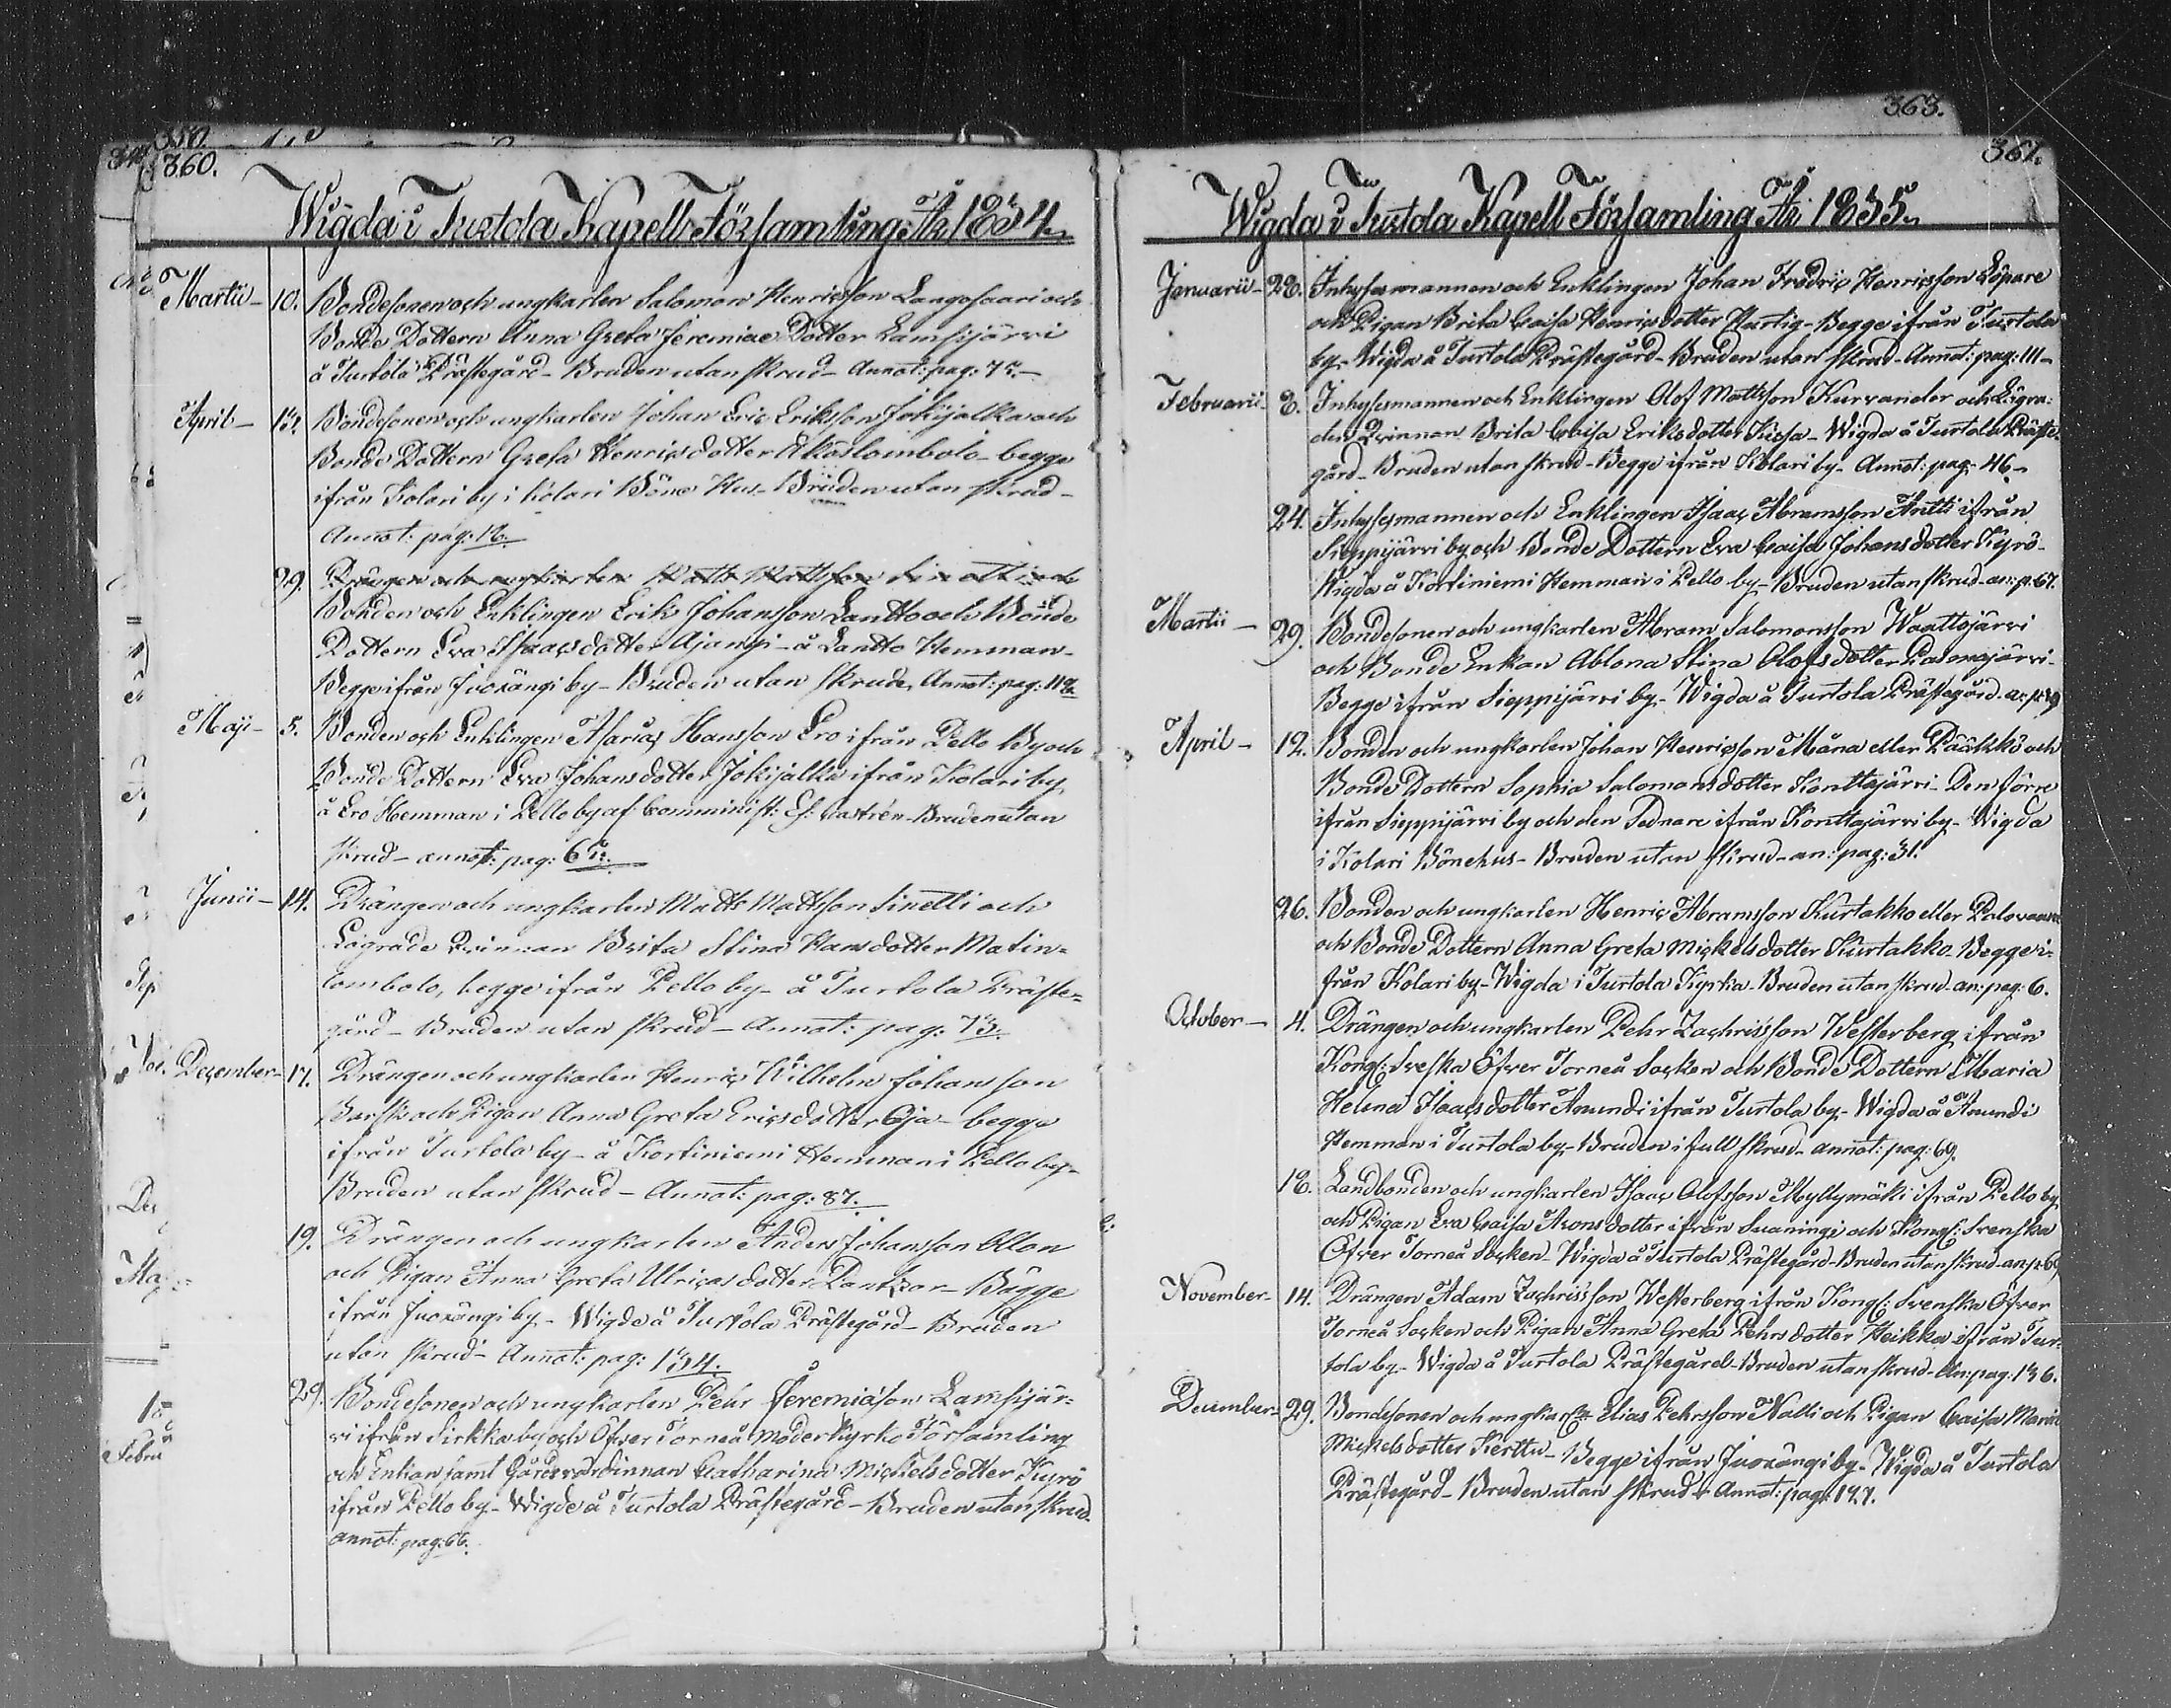 350.
360.
Wigda i Turtola Kapells Församling År 1834.
Martii - 10. Bondesonen och ungkarlen Salomon Henricsson Langosaari och
Bonde Dottern Anna Greta Jeremiæ Dotter Lamsijärvi
å Turtola Prästegård - Bruden utan skrud - Annot: pag:
April - Bondesonen och ungkarlen Johan Eric Eriksson Jokijalka och
Bonde Dottern Greta Henricsdotter Äkäslombolo - begge
ifrån Kolari by i Kolari Böne Hus - Bruden utan skrud -
Annot: pag: 12.
29. Drängen och ungkarlen Matts Mattsson Sinetti och
Bonden och Enklingen Erik Johansson Lantto och Bonde
Dottern Eva Isaacsdotter Ajangi - å Lantto Hemman -
Begge ifrån Juoxängi by - Bruden utan skrud, Annot: pag:
Maji - 5. Bonden och Enklingen Asarias Hansson Ero ifrån Pello By och
Bonde Dottern Eva Johansdotter Jokijalka ifrån Kolari by,
å Ero Hemman i Pello by af Comminist: Ef: Castrén - Bruden utan
skrud - annot: pag:
Junii - 14. Drängen och ungkarlen Matts Mattsson Sinetti och
Lägrade Qvinnan Brita Stina Hansdotter Matin=
lombolo, begge ifrån Pello by - å Turtola Präste=
gård - Bruden utan skrud - Annot: pag: 73.
December - 17. Drängen och ungkarlen Henric Wilhelm Johansson
Barsk och Pigan Anna Greta Ericsdotter Oja - begge
ifrån Turtola by - å Kortiniemi Hemman i Pello by -
Bruden utan skrud - Annot: pag: 87.
19. Drängen och ungkarlen Anders Johansson Ollon
och Pigan Anna Greta Ulricasdotter Dantzar - Bägge
ifrån Juoxängi by - Wigde å Turtola Prästegård - Bruden
utan skrud - Annot: pag: 134.
29. Bondesonen och ungkarlen Pehr Jeremiæson Lamsijär=
vi ifrån Sirkka by och Öfver Torneå Moderkyrko Församling
och Enkan samt Gårdsvärdinnan Catharina Mickelsdotter Kyrö
ifrån Pello by - Wigde å Turtola Prästegård - Bruden utan skrud.
annot: pag: 66.
363.
361.
Wigda i Turtola Kapell Församling År 1835.
Januarii - 22. Inhysesmannen och Enklingen Johan Fredric Henricsson Löpare
och Pigan Brita Caisa Henricsdotter Hurtig - Begge ifrån Turtola
by - Wigda å Turtola Prästegård - Bruden utan skrud - Annot: pag: 111 -
Februarii - 2. Inhysesmannen och Enklingen Olof Mattsson Kurvander och Lägra=
den Qvinnan Brita Caisa Eriksdotter - Wigda å Turtola Präste=
gård - Bruden utan skrud - Begge ifrån Kolari by - Annot: pag: 46 -
24. Inhysesmannen och Enklingen Isaac Abramsson Antti ifrån
Sieppijärvi by och Bonde Dottern Eva Caisa Johansdotter Kyrö -
Wigda å Kortiniemi Hemman i Pello by - Bruden utan skrud - an: p: 67.
Martii - 29. Bondesonen och ungkarlen Abram Salomonsson Waattojärvi
och Bonde Enkan Ablona Stina Olofsdotter Pasmajärvi -
Begge ifrån Sieppijärvi by - Wigda å Turtola Prästegård - an: p:
April - 12. Bonden och ungkarlen Johan Henricsson Måna eller Pääkkö och
Bonde Dottern Sophia Salomonsdotter Konttajärvi - Den förre
ifrån Sieppijärvi by och den Sednare ifrån Konttajärvi by - Wigda
i Kolari Bönehus - Bruden utan skrud - an: pag: 31.
26. Bonden och ungkarlen Henric Abramsson Kurtakko eller Palovaara
och Bonde Dottern Anna Greta Mickelsdotter Kurtakko - Begge i=
från Kolari by - Wigda i Turtola Kyrka - Bruden utan skrud - an: pag: 6.
October - 4. Drängen och ungkarlen Pehr Zachrisson Westerberg ifrån
Kongl: Sveska Öfver Torneå Socken och Bonde Dottern Maria
Helena Isaacsdotter Amundi ifrån Turtola by - Wigda å Amundi
Hemman i Turtola by - Bruden i full skrud - annot: pag: 69.
Landbonden och ungkarlen Isaac Olofsson Myllymäki ifrån Pello by
och Pigan Eva Caisa Aronsdotter ifrån Svaningi och Kongl: Svenska
Öfver Torneå Socken - Wigda å Turtola Prästegård - Bruden utan skrud - an: p:
November - 14. Drängen Adam Zachrisson Westerberg ifrån Kongl: Svenska Öfver
Torneå Socken och Pigan Anna Greta Pehrsdotter Heikka ifrån Tur=
tola by - Wigda å Turtola Prästegård - Bruden utan skrud - An: pag: 136.
December - 29. Bondesonen och ungkarlen Elias Pehrsson Nalli och Pigan Caisa Maria
Mickelsdotter Kerttu - Begge ifrån Juoxängi by - Wigda å Turtola
Prästegård - Bruden utan skrud - Annot: pag: 127.